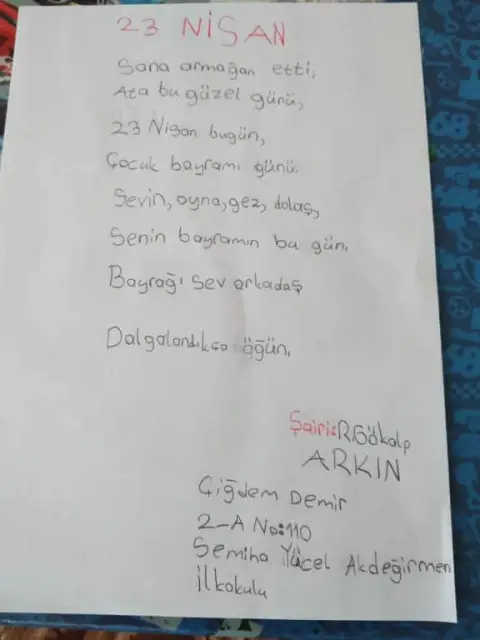 23 NİSAN
Sana armağan etti,
Ata bu güzel günü,
23 Nisan bugün,
Çocuk bayramı günü.
Sevin, oyna, gez, dolaş,
Senin bayramın bu gün.
Bayrağı sev arkadaş
Dalgalandıkça öğün.
Şairi: R. Gökalp
ARKIN
Çiğdem Demir
2-A No: 110
Semiha Yücel Akdeğirmen
İlkokulu